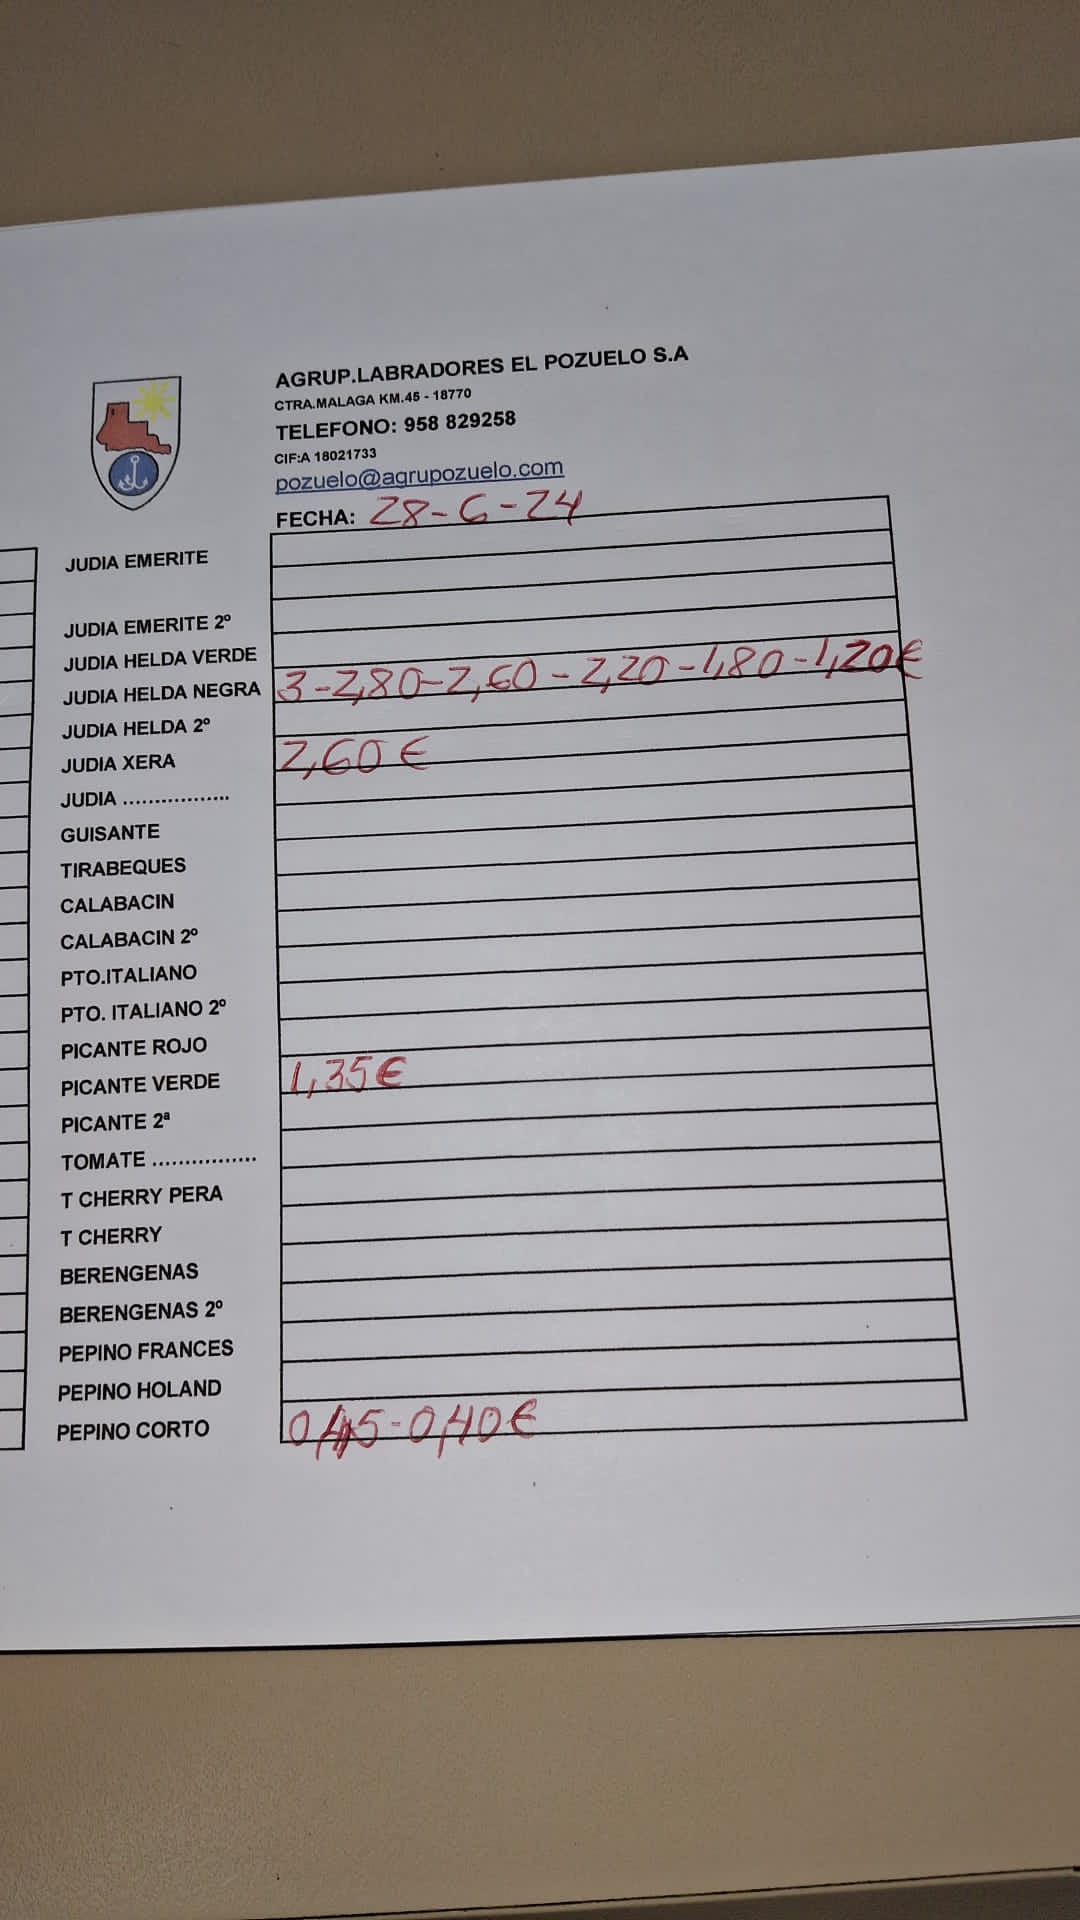 AGRUP.LABRADORES EL POZUELO S.A
CTRA.MALAGA KM.45 - 18770
TELEFONO: 958 829258
CIF:A 18021733
pozuelo@agrupozuelo.com
FECHA: 28-6-24
JUDIA EMERITE
JUDIA EMERITE 2º
JUDIA HELDA VERDE
JUDIA HELDA NEGRA 3-2,80-2,60-2,20-1,80-1,20€
JUDIA HELDA 2º
JUDIA XERA 2,60€
JUDIA .................
GUISANTE
TIRABEQUES
CALABACIN
CALABACIN 2º
PTO.ITALIANO
PTO. ITALIANO 2º
PICANTE ROJO
PICANTE VERDE 1,35€
PICANTE 2ª
TOMATE ................
T CHERRY PERA
T CHERRY
BERENGENAS
BERENGENAS 2º
PEPINO FRANCES
PEPINO HOLAND
PEPINO CORTO 0,45-0,40€